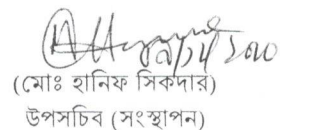 (মোঃ হানিফ সিকদার)
উপসচিব (সংস্থাপন)